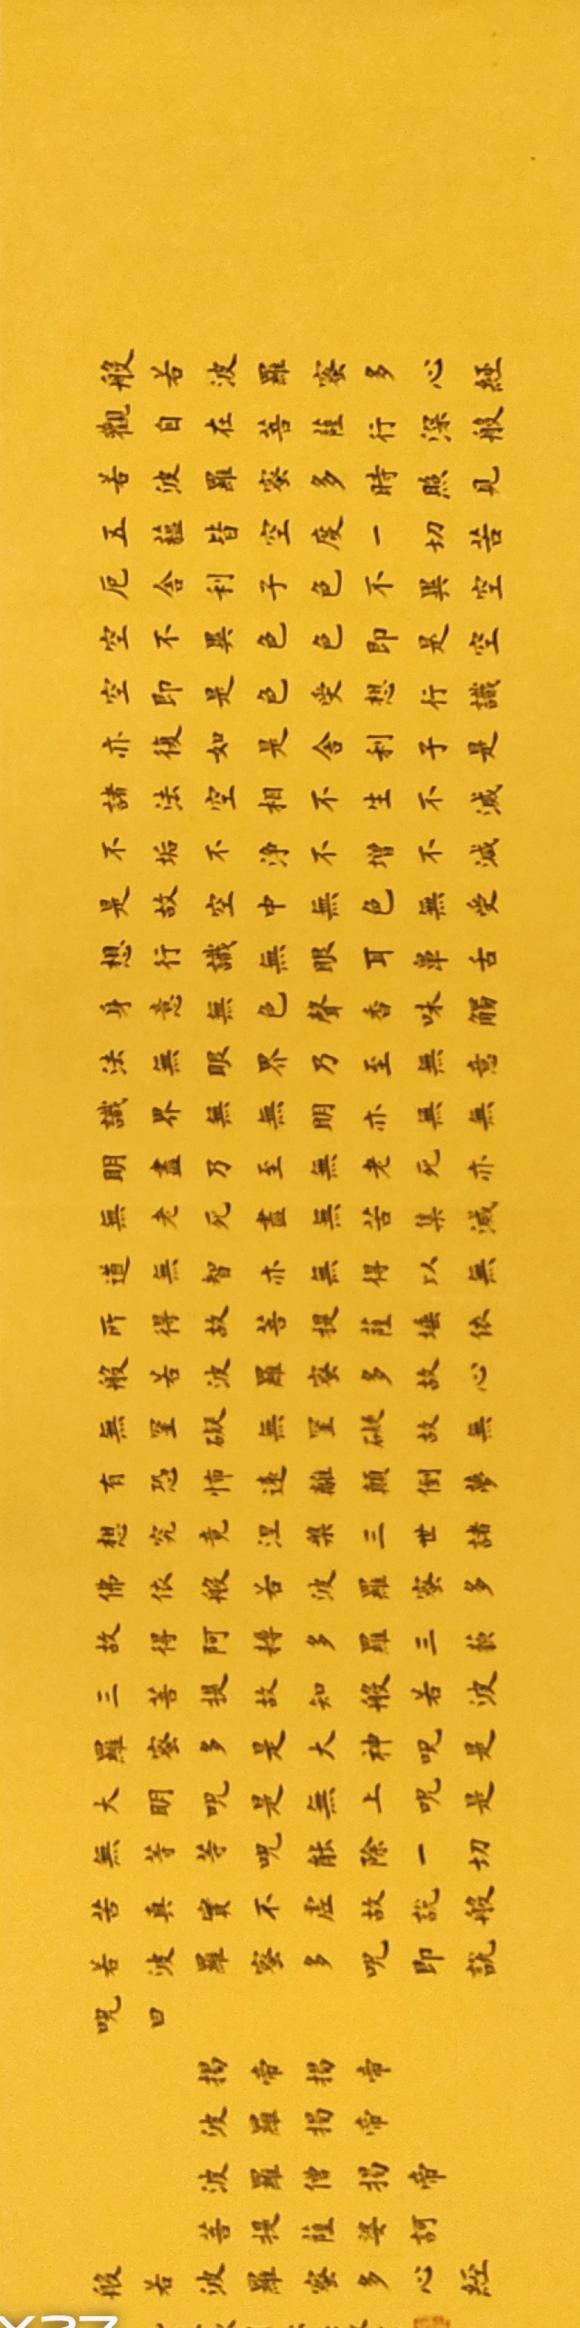 般若波羅蜜多心經
觀自在菩薩行深般
若波羅蜜多時照見
五蘊皆空度一切苦
厄舍利子色不異空
空不異色色即是空
空即是色受想行識
亦復如是舍利子是
諸法空相不生不滅
不垢不淨不增不減
是故空中無色無受
想行識無眼耳鼻舌
身意無色聲香味觸
法無眼界乃至無意
識界無無明亦無無
明盡乃至無老死亦
無老死盡無苦集滅
道無智亦無得以無
所得故菩提薩埵依
般若波羅蜜多故心
無罣礙無罣礙故無
有恐怖遠離顛倒夢
想究竟涅槃三世諸
佛依般若波羅蜜多
故得阿耨多羅三藐
三菩提故知般若波
羅蜜多是大神呪是
大明呪是無上呪是
無等等呪能除一切
苦真實不虛故說般
若波羅蜜多呪即說
呪曰
揭帝揭帝
波羅揭帝
波羅僧揭帝
菩提薩婆訶
般若波羅蜜多心經